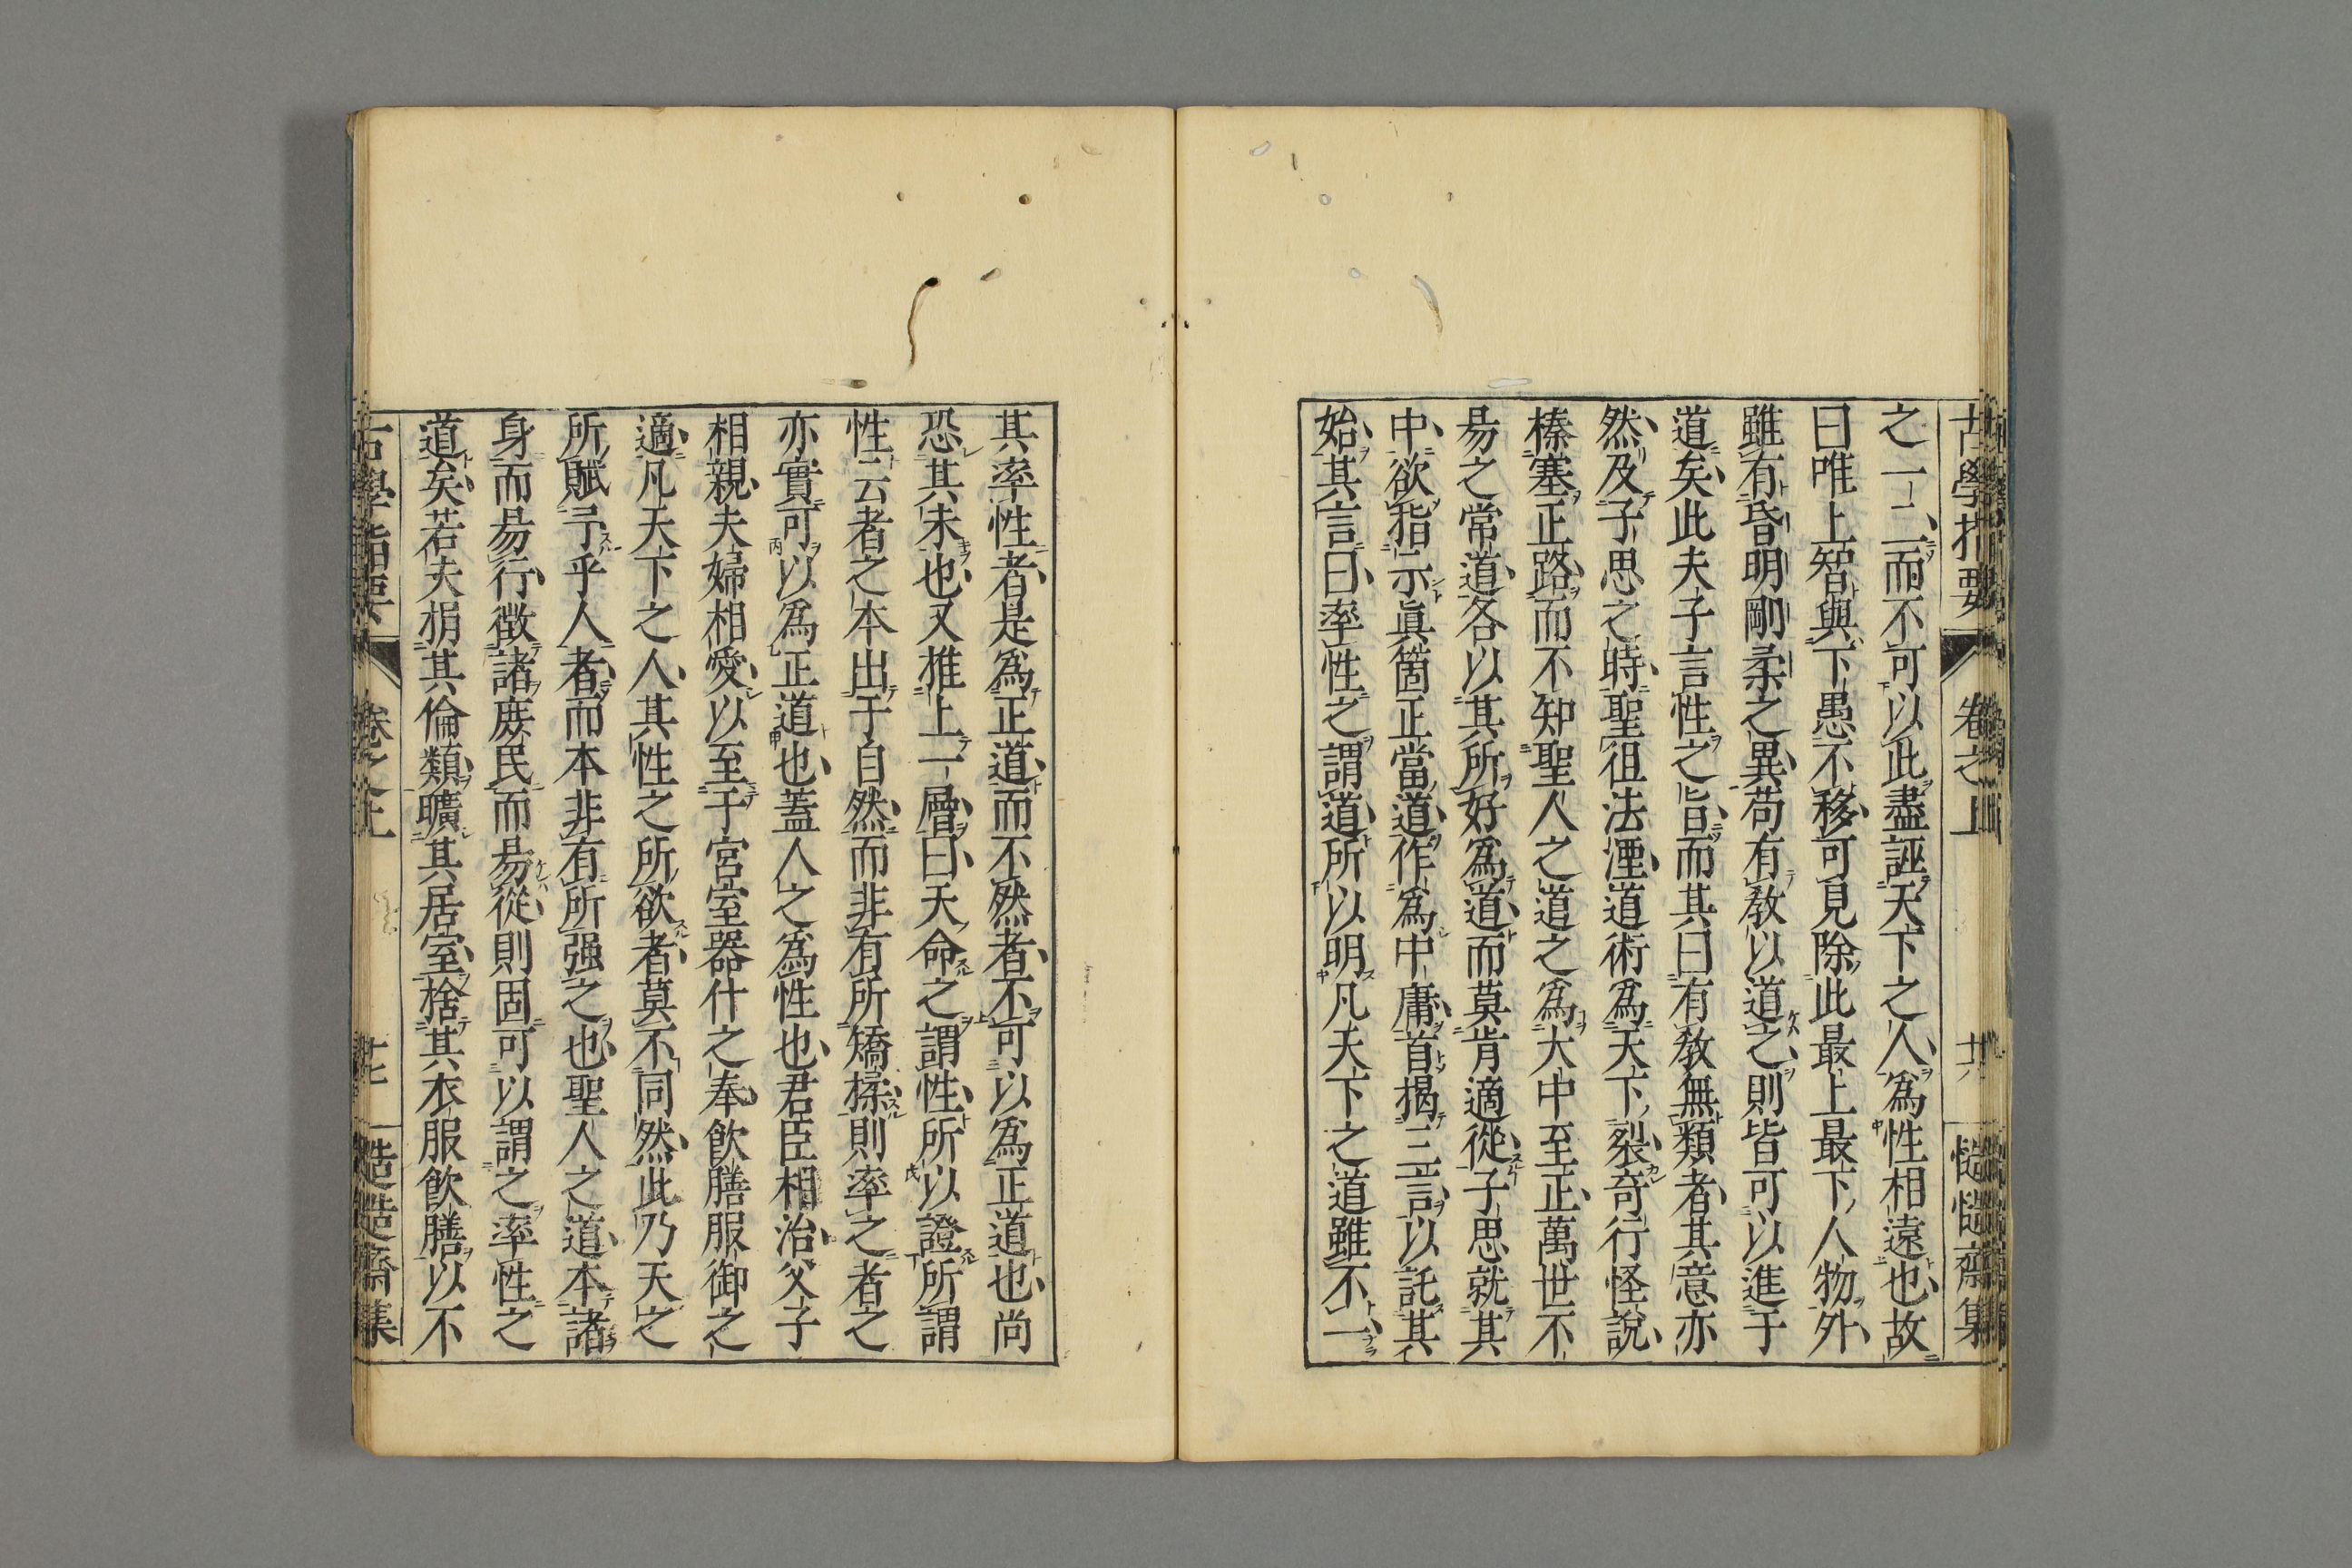 古學指要 卷之上 十六 慥慥齋集
之一二而不可以此盡誣天下之人爲性相遠也故
曰唯上智與下愚不移可見除此最上最下人物外
雖有昏明剛柔之異苟有教以道之則皆可以進于
道矣此夫子言性之旨而其曰有教無類者其意亦
然及子思之時聖徂法湮道術爲天下裂奇行怪說
榛塞正路而不知聖人之道之爲大中至正萬世不
易之常道各以其所好爲道而莫肯適從子思就其
中欲指示眞箇正當道作爲中庸首揭三言以託其
始其言曰率性之謂道所以明凡夫天下之道雖不一
其率性者是爲正道而不然者不可以爲正道也尚
恐其未也又推上一層曰天命之謂性所以證所謂
性云者之本出于自然而非有所矯揉則率之者之
亦實可以爲正道也蓋人之爲性也君臣相治父子
相親夫婦相愛以至于宮室器什之奉飲膳服御之
適凡天下之人其性之所欲者莫不同然此乃天之
所賦予乎人者而本非有所强之也聖人之道本諸
身而易行徵諸庶民而易從則固可以謂之率性之
道矣若夫捐其倫類曠其居室捨其衣服飲膳以不
古學指要 卷之上 慥慥齋集